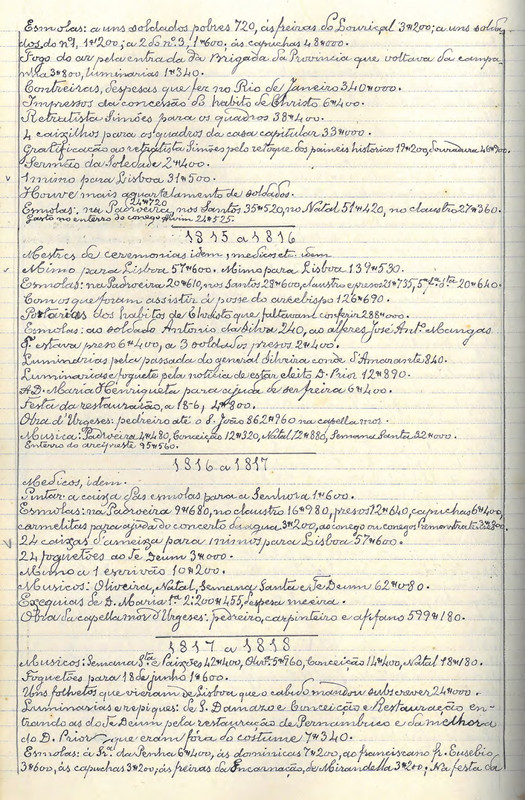 Esmolas: a uns soldados pobres 720, às freiras do Louriçal 3#200; a uns solda-
dos do nº1, 1#200; a 2 do nº3, 1#600; às capuchas 48#000.
Fogo do ar pela entrada da Brigada da Provincia que voltava da campa-
nha 3#800, luminarias 1#340.
Contreiras, despesas que fez no Rio de Janeiro 340#000.
Impressos da concessão do habito de Christo 6#400.
Retratista Simões para os quadros 38#400.
4 caixilhos para os quadros da casa capitular 33#000.
Gratificação ao retratista Simões pelo retoque dos paineis historico 19#200, douradura 46#900.
Sermão da Soledade 2#400.
v 1 mimo para Lisboa 31#500.
Houve mais aquartelamento de soldados.
Esmolas: na Padroeira 24#720, nos Santos 35#520, no Natal 51#420, no claustro 27#360.
Gasto no enterro do conego Alvim 24#525.
1815 a 1816
Mestres de ceremonias idem, medicos etc. idem
v Mimo para Lisboa 57#600. Mimo para Lisboa 139#530.
Esmolas: na Padroeira 20#610, nos Santos 28#600, claustro e presos 25#735, 5ª fª Stª 20#640.
Com os que foram assistir á posse do arcebispo 126#690.
Portarias dos habitos de Christo que faltavam conferir 288#000.
Esmolas: ao soldado Antonio da Silva 240, ao alferes José Antº Mangas
qᵉ estava preso 6#400, a 3 soldados presos 2#400.
Luminarias pela passada do general Silveira conde d'Amarante 840.
Luminarias e foguete pela noticia de estar eleito D. Prior 12#890.
A D. Maria Henriqueta para ajuda de ser freira 6#400.
Festa da restauração, a 18-6, 4#800.
Obra d'Urgeses: pedreiro até o S. João 862#960 na capella mor.
Musica: Padroeira 4#480, Conceição 12#320, Natal 12#880, Semana Santa 32#000.
Enterro do arcipreste 45#560.
1816 a 1817
Medicos, idem.
Pintar a caixa das esmolas para a Senhora 1#600.
Esmolas: na Padroeira 9#680, no claustro 16#980, presos 12#640, capuchas 6#400,
carmelitas para ajuda do concerto da agua 3#200, ao conego ou conegos Premonstratᵉ 12#800.
v 24 caixas d'ameixa para mimos para Lisboa 57#600.
24 foguetões ao Te Deum 3#000.
Mimo a 1 escrivão 10#200.
Musicos: Oliveira, Natal, Semana Santa e Te Deum 62#080.
Exequias de D. Maria 1ª 2:200#455, despesa meeira.
Obra da capella mor d'Urgeses: pedreiro, carpinteiro e appano 599#180.
1817 a 1818
Musicos: Semana Sᵗª e Paixões 42#400, Olivª 5#960, Conceição 14#400, Natal 18#180.
Foguetões para 18 de junho 1#600.
Uns folhetos que vieram de Lisboa que o cabido mandou subscrever 24#000.
Luminarias e repiques: de S. Damazo e Conceição e Restauração en-
trando as do Te Deum pela restauração de Pernambuco e da melhora
do D. Prior que eram fora do costume 7#340.
Esmolas: á Srª da Penha 6#400, ás dominicas 7#200, ao franciscano fr. Eusebio
3#600, às capuchas 3#200, ás freiras da Encarnação, de Mirandella 3#200; Na festa da